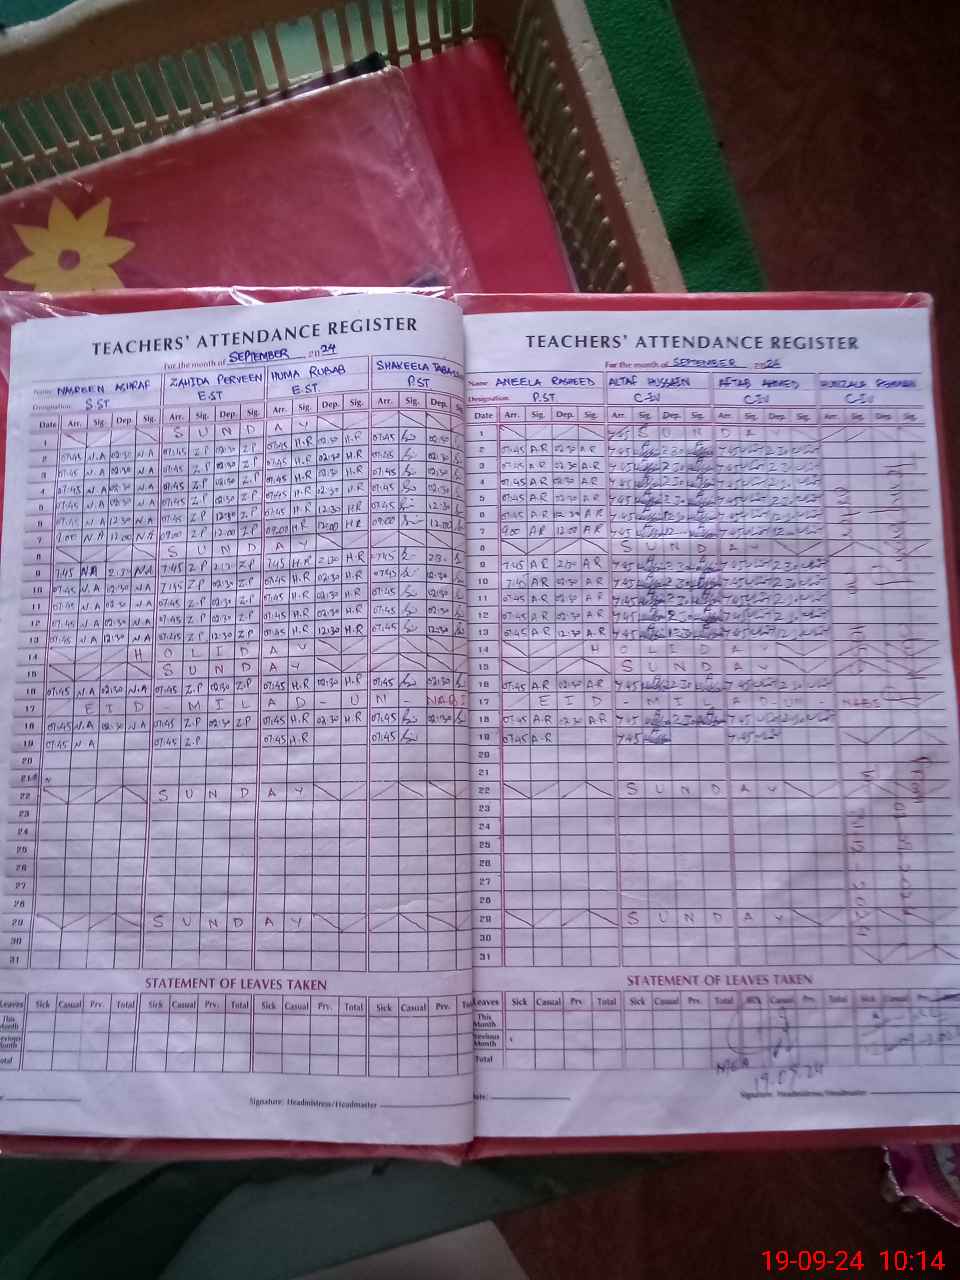 TEACHERS' ATTENDANCE REGISTER
For the month of SEPTEMBER 2024
Name NASREEN ASHRAF ZAHIDA PERVEEN HUMA RUBAB SHAKEELA
Designation S.ST E.ST E.ST. P.ST
Date Arr. Sig. Dep. Sig. Arr. Sig. Dep. Sig. Arr. Sig. Dep. Sig. Arr. Sig. Dep. Sig.
1 SUNDAY
2 07:45 N.A 02:30 N.A 07:45 Z.P 02:30 Z.P 07:45 H.R 02:30 H.R 07:45 02:30
3 07:45 N.A 02:30 N.A 07:45 Z.P 02:30 Z.P 07:45 H.R 02:30 H.R 07:45 02:30
4 07:45 N.A 02:30 N.A 07:45 Z.P 02:30 Z.P 07:45 H.R 02:30 H.R 07:45 02:30
5 07:45 N.A 02:30 N.A 07:45 Z.P 02:30 Z.P 07:45 H.R 02:30 H.R 07:45 02:30
6 07:45 N.A 12:30 N.A 07:45 Z.P 12:30 Z.P 07:45 H.R 12:30 H.R 07:45 12:30
7 9:00 N.A 12:00 N.A 09:00 Z.P 12:00 Z.P 09:00 H.R 12:00 H.R 09:00 12:00
8 SUNDAY
9 7:45 N.A 2:30 N.A 7:45 Z.P 2:30 Z.P 7:45 H.R 2:30 H.R 7:45 2:30
10 07:45 N.A 02:30 N.A 7:45 Z.P 02:30 Z.P 07:45 H.R 02:30 H.R 07:45 02:30
11 07:45 N.A 02:30 N.A 07:45 Z.P 02:30 Z.P 07:45 H.R 02:30 H.R 07:45 02:30
12 07:45 N.A 02:30 N.A 07:45 Z.P 02:30 Z.P 07:45 H.R 02:30 H.R 07:45 02:30
13 07:45 N.A 12:30 N.A 07:45 Z.P 12:30 Z.P 07:45 H.R 12:30 H.R 07:45 12:30
14 HOLIDAY
15 SUNDAY
16 07:45 N.A 02:30 N.A 07:45 Z.P 02:30 Z.P 07:45 H.R 02:30 H.R 07:45 02:30
17 EID - MILAD - UN - NABI
18 07:45 N.A 02:30 N.A 07:45 Z.P 02:30 Z.P 07:45 H.R 02:30 H.R 07:45 02:30
19 07:45 N.A 07:45 Z.P 07:45 H.R 07:45
20
21
22 SUNDAY
23
24
25
26
27
28
29 SUNDAY
30
31
STATEMENT OF LEAVES TAKEN
Leaves Sick Casual Prv. Total Sick Casual Prv. Total Sick Casual Prv. Total Sick Casual Prv.
This Month
Previous Month
Total
Signature: Headmistress/Headmaster
TEACHERS' ATTENDANCE REGISTER
For the month of SEPTEMBER 2024
Name ANEELA RASHEED ALTAF HUSSAIN AFTAB AHMED
Designation P.ST C-IV C-IV C-IV
Date Arr. Sig. Dep. Sig. Arr. Sig. Dep. Sig. Arr. Sig. Dep. Sig. Arr. Sig. Dep. Sig.
1 7:45 SUNDAY
2 07:45 A.R 02:30 A.R 7:45 2:30 7:45 2:30
3 07:45 A.R 02:30 A.R 7:45 2:30 7:45 2:30
4 07:45 A.R 02:30 A.R 7:45 2:30 7:45 2:30
5 07:45 A.R 02:30 A.R 7:45 2:30 7:45 2:30
6 07:45 A.R 12:30 A.R 7:45 12:30 7:45
7 9:00 A.R 12:00 A.R 7:45 7:45
8 SUNDAY
9 7:45 A.R 2:30 A.R 7:45 2:30 7:45 2:30
10 7:45 A.R 02:30 A.R 7:45 2:30 7:45 2:30
11 07:45 A.R 02:30 A.R 7:45 2:30 7:45 2:30
12 07:45 A.R 02:30 A.R 7:45 2:30 7:45 2:30
13 07:45 A.R 12:30 A.R 7:45 7:45
14 HOLIDAY
15 SUNDAY
16 07:45 A.R 02:30 A.R 7:45 2:30 7:45 2:30
17 EID - MILAD - UN - NABI
18 07:45 A.R 02:30 A.R 7:45 2:30 7:45 2:30
19 07:45 A.R 7:45 7:45
20
21
22 SUNDAY
23
24
25
26
27
28
29 SUNDAY
30
31
From 01-09-2024
STATEMENT OF LEAVES TAKEN
Leaves Sick Casual Prv. Total Sick Casual Prv. Total Casual Prv. Total Sick Casual Prv.
This Month
Previous Month
Total
19.09.24
Signature: Headmistress/Headmaster
19-09-24 10:14